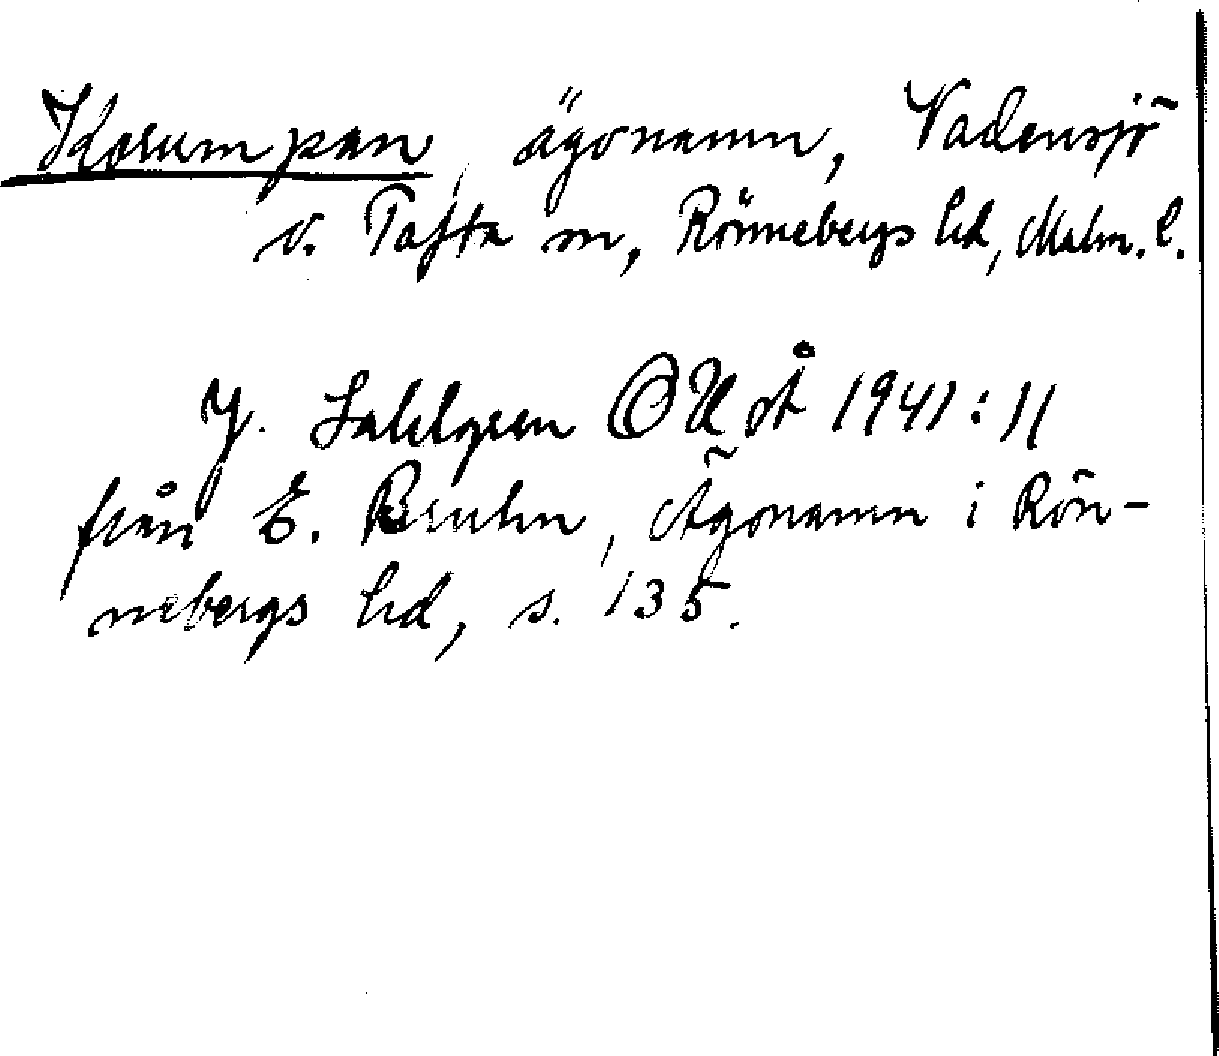 Korumpan, ägonamn, Vadensjö
o. Tofta sn, Rönnebergs hd, Malm. l.
J. Sahlgren OUÅ 1941: 11
från E. Bruhn, Ägonamn i Rön-
nebergs hd, s. 135.